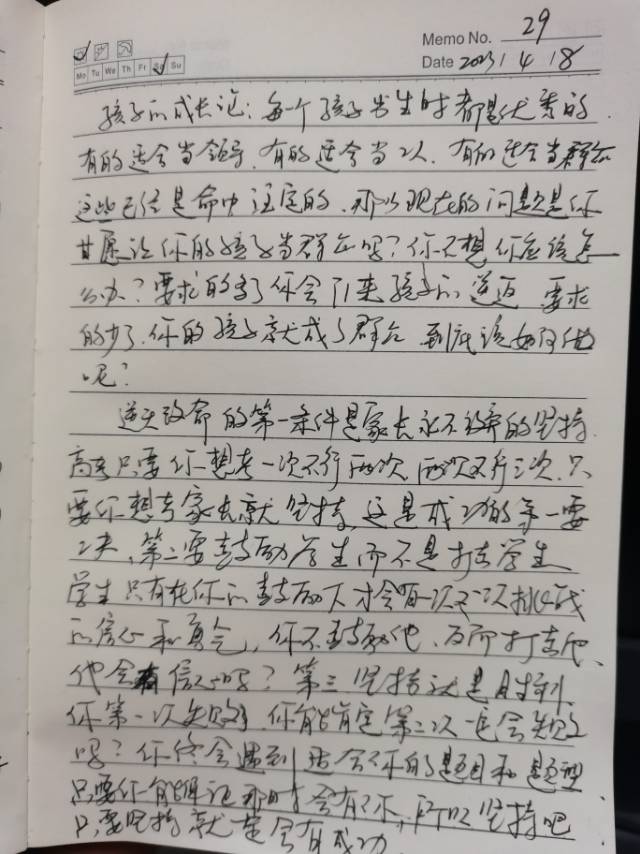 Memo No. 29
Mo Tu We Th Fr Sa Su
Date 2023 / 4 / 18
孩子的成长论：每一个孩子出生时都是优秀的.
有的适合当领导.有的适合当工人.有的适合当群众
这些已经是命中注定的.所以现在的问题是你
甘愿让你的孩子当群众吗？你不想你应该怎
么办？要求的多了你会引来孩子的逆返 要求
的少了.你的孩子就成了群众 到底该如何做
呢？
逆天改命的第一条件是家长永不放弃的坚持.
高考只要你想考一次不行两次 两次不行三次.只
要你想考家长就坚持,这是成功的第一要
决,第二要鼓励学生而不是打击学生
学生只有在你的鼓励下才会有一次又一次挑战
的信心和勇气,你不鼓励他、反而打击他、
他会有信心吗？第三坚持就是胜利
你第一次失败了你能肯定第二次一定会失败
吗？你终会遇到适合你的题目和题型
只要你能 那时 会有 ,所以坚持吧
只要坚持就定会有成功